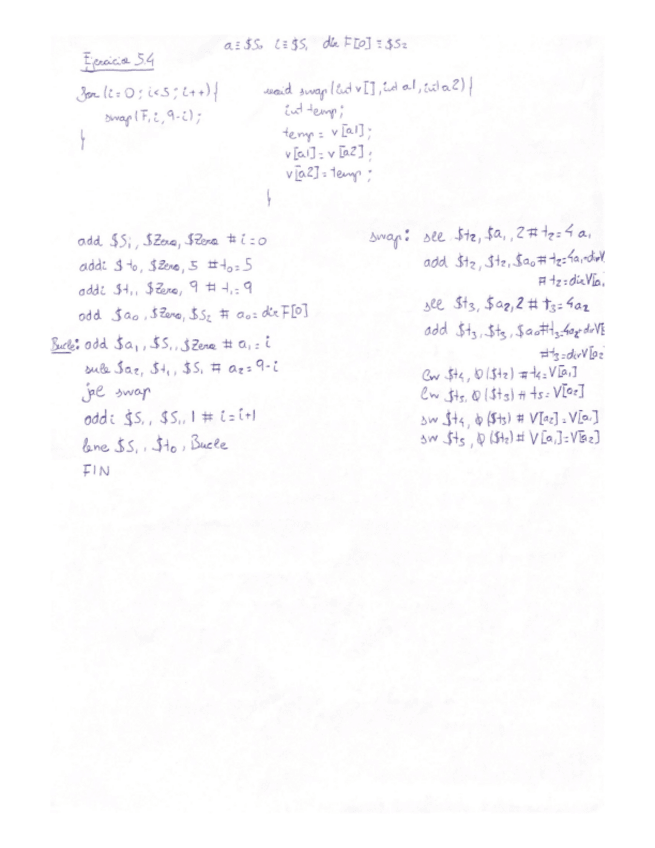 a ≡ $S₀ i ≡ $S₁ dir F[0] ≡ $S₂
Ejercicio 5.4
for (i=0; i<5; i++) {
swap(F, i, 9-i);
}
void swap (int v[], int a1, int a2) {
int temp;
temp = v[a1];
v[a1] = v[a2];
v[a2] = temp;
}
add $S₁, $Zero, $Zero # i=0
addi $t₀, $Zero, 5 # t₀=5
addi $t₁, $Zero, 9 # t₁=9
add $a₀, $Zero, $S₂ # a₀= dir F[0]
Bucle: add $a₁, $S₁, $Zero # a₁=i
sub $a₂, $t₁, $S₁ # a₂=9-i
jal swap
addi $S₁, $S₁, 1 # i=i+1
bne $S₁, $t₀, Bucle
FIN
swap: sll $t₂, $a₁, 2 # t₂=4a₁
add $t₂, $t₂, $a₀ # t₂=4a₁+dirV
# t₂=dirV[a₁
sll $t₃, $a₂, 2 # t₃=4a₂
add $t₃, $t₃, $a₀ # t₃=4a₂+dirV[
# t₃=dirV[a₂
lw $t₄, 0($t₂) # t₄=V[a₁]
lw $t₅, 0($t₃) # t₅=V[a₂]
sw $t₄, 0($t₃) # V[a₂]=V[a₁]
sw $t₅, 0($t₂) # V[a₁]=V[a₂]